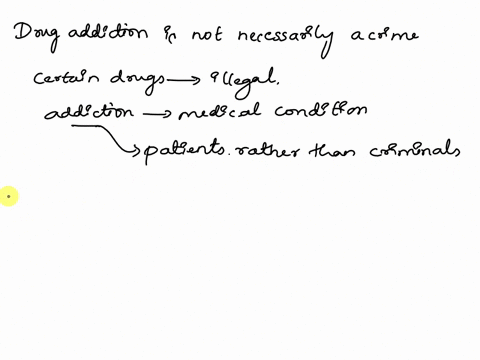 Drug addiction is not necessarily a crime
certain drugs → illegal.
addiction → medical condition
→ patients. rather than criminals